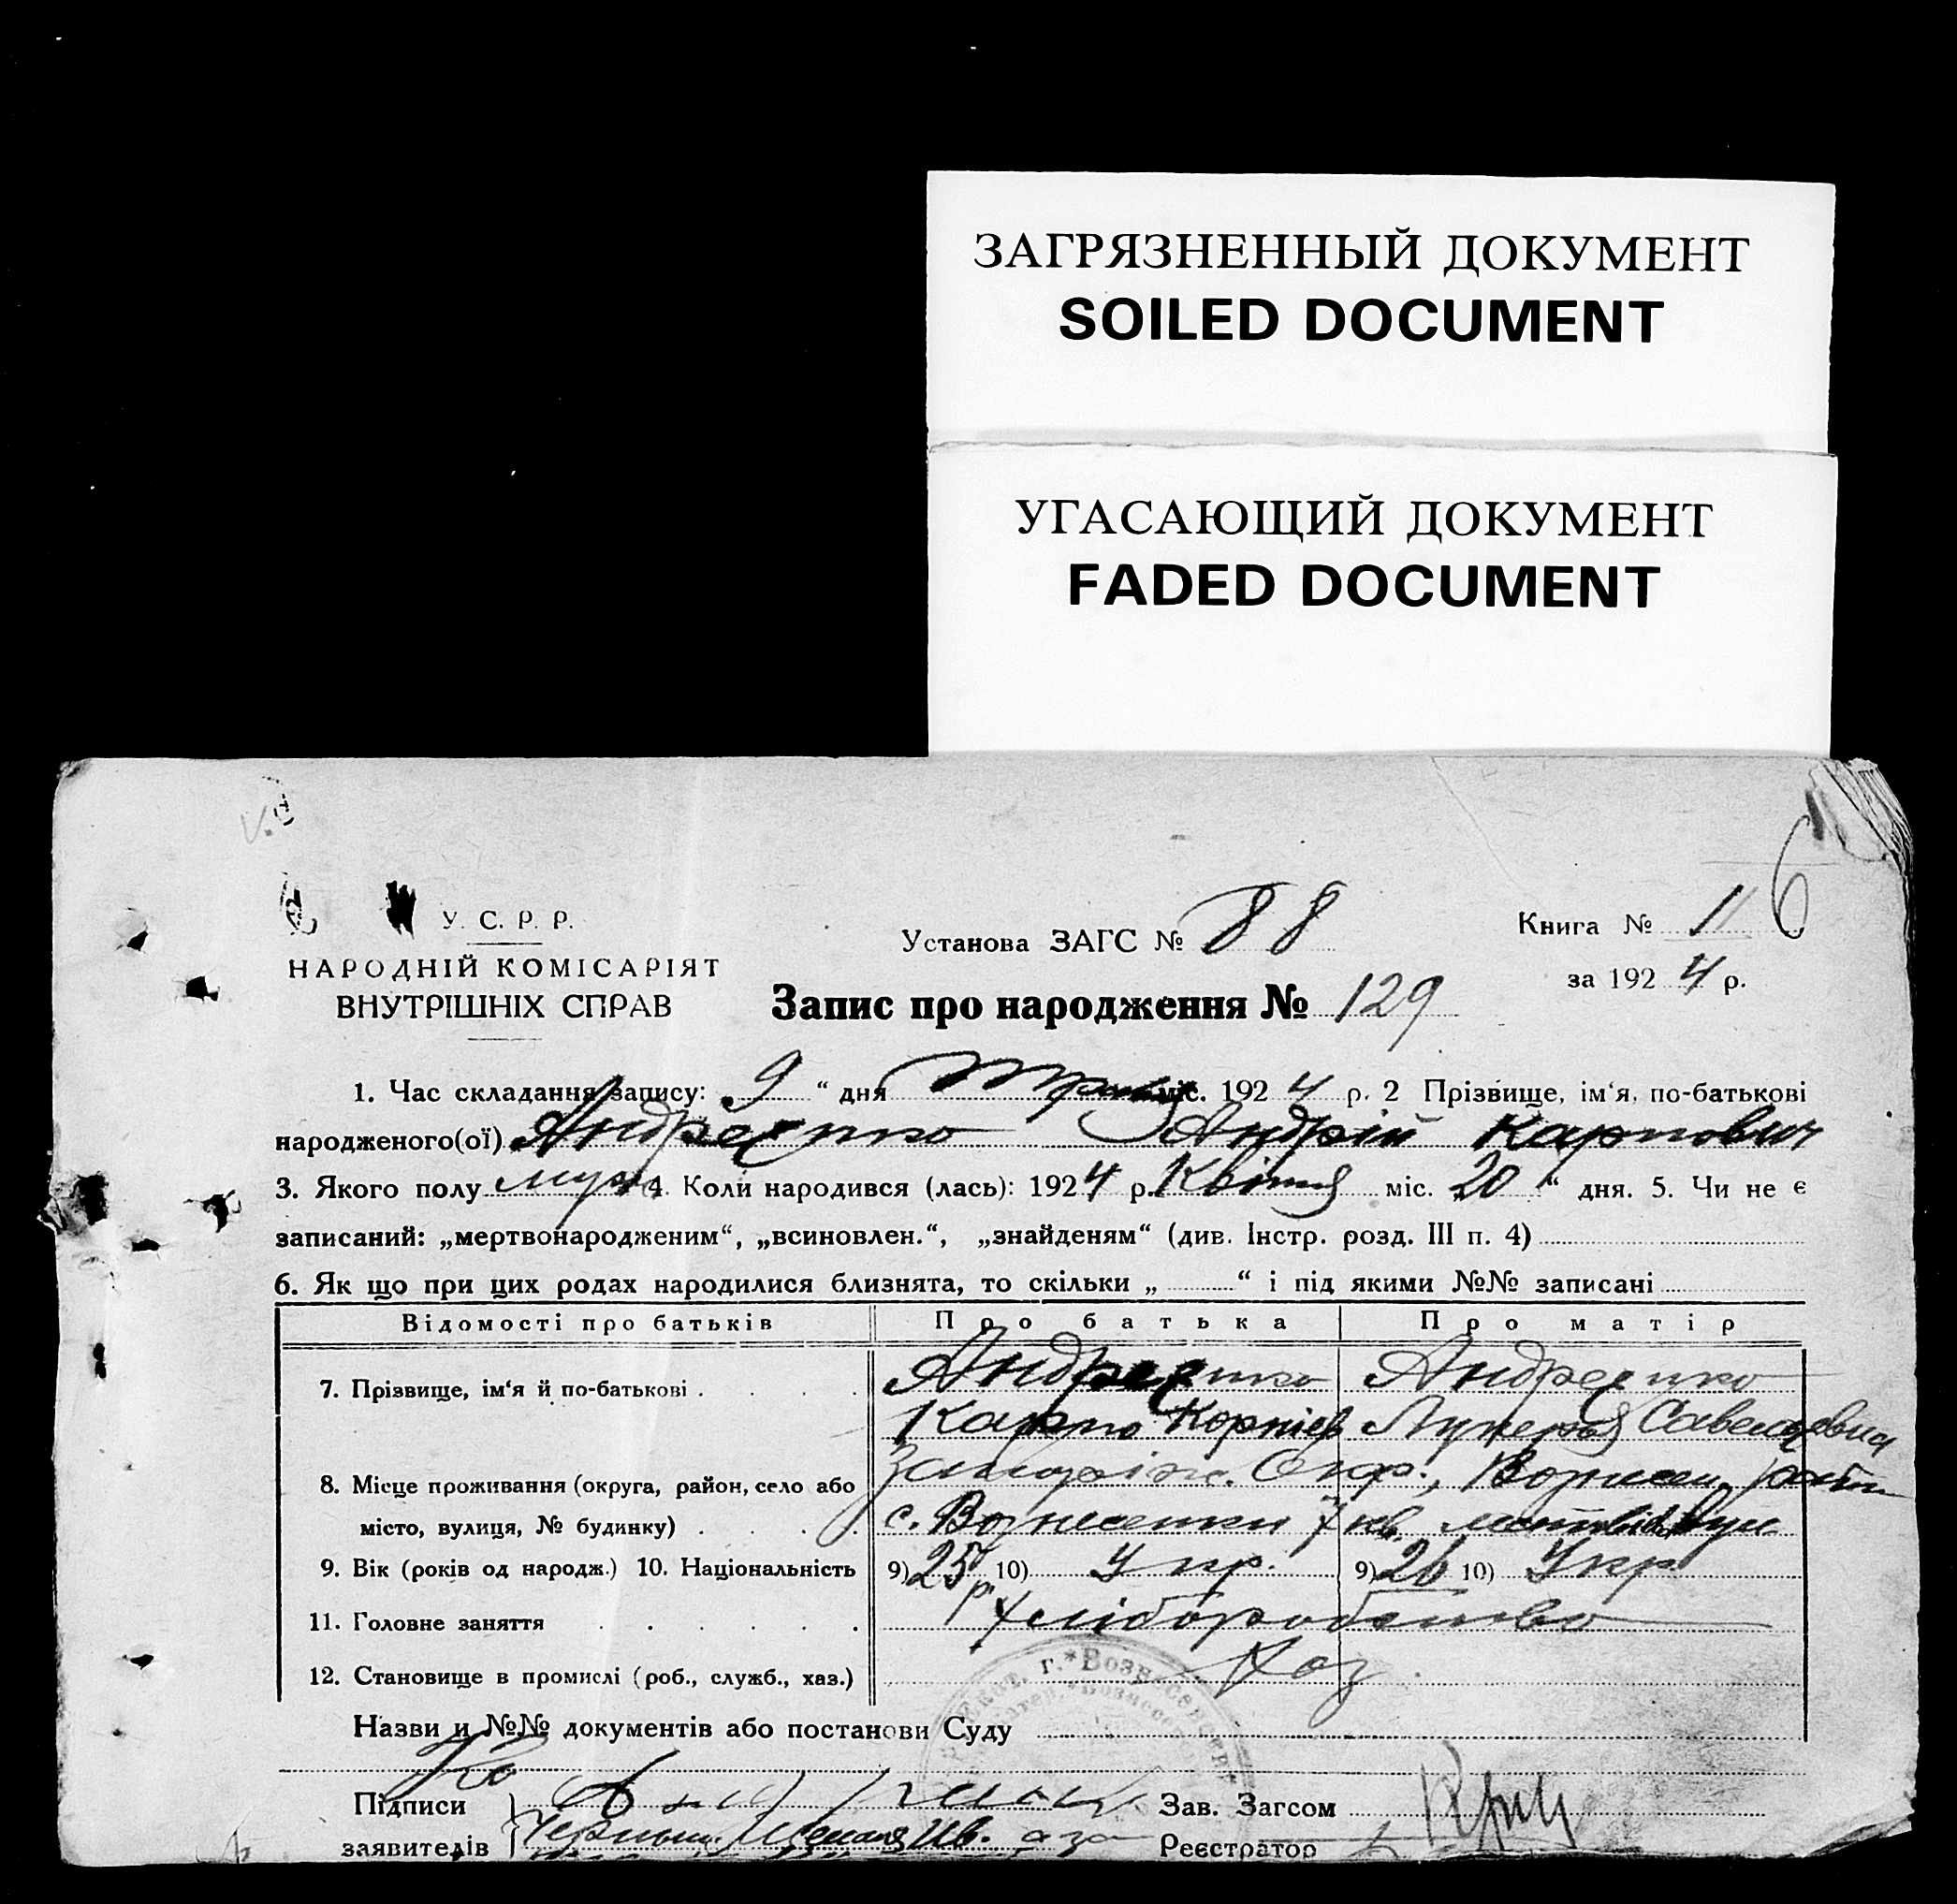 ЗАГРЯЗНЕННЫЙ ДОКУМЕНТ
SOILED DOCUMENT
УГАСАЮЩИЙ ДОКУМЕНТ
FADED DOCUMENT
6
У. С. Р. Р.
НАРОДНІЙ КОМІСАРІЯТ
ВНУТРІШНІХ СПРАВ
Установа ЗАГС № 88
Книга № 11
за 1924 р.
Запис про народження № 129
1. Час складання запису: 9 “ дня Травня міс. 1924 р. 2 Прізвище, ім‘я, по-батькові
народженого(ої) Андреєнко Андрій Карпович
3. Якого полу муж. 4 Коли народився (лась): 1924 р. Квітня міс. 20 “ дня. 5. Чи не є
записаний: „мертвонародженим“, „всиновлен.“, „знайденям“ (див. Інстр. розд. III п. 4)
6. Як що при цих родах народилися близнята, то скільки „ “ і під якими №№ записані
Відомості про батьків Про батька Про матір
7. Прізвище, ім‘я й по-батькові Андреєнко Андреєнко
Карпо Корнієв
8. Місце проживання (округа, район, село або Запоріж. Окр., Вознесен.
місто, вулиця, № будинку) с. Вознесенки 7 кв.
9. Вік (років од народж.) 10. Національність 9) 25 р. 10) Укр. 9) 26 10) Укр.
11. Головне заняття Хліборобство
12. Становище в промислі (роб., служб., хаз.) Хаз.
Назви и №№ документів або постанови Суду
Підписи
заявителів
Зав. Загсом
Реєстратор